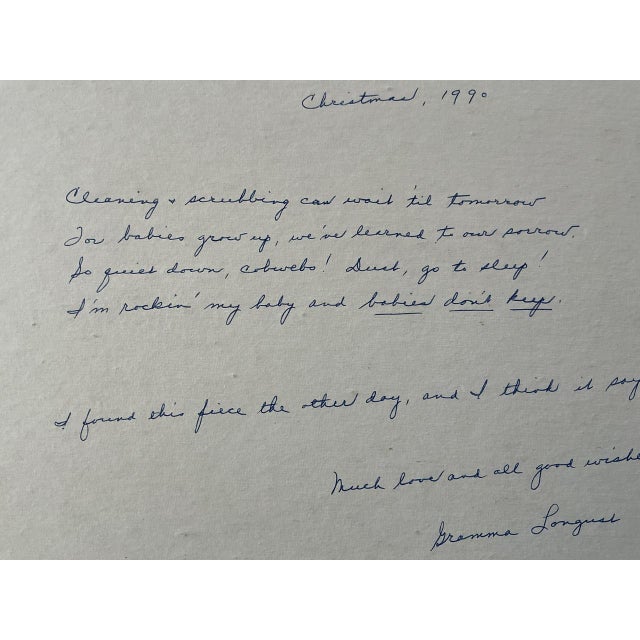 Christmas, 1990
Cleaning & scrubbing can wait 'til tomorrow
For babies grow up, we've learned to our sorrow.
So quiet down, cobwebs! Dust, go to sleep!
I'm rockin' my baby and babies don't keep.
I found this piece the other day, and I think it say
Much love and all good wishe
Gramma Longust